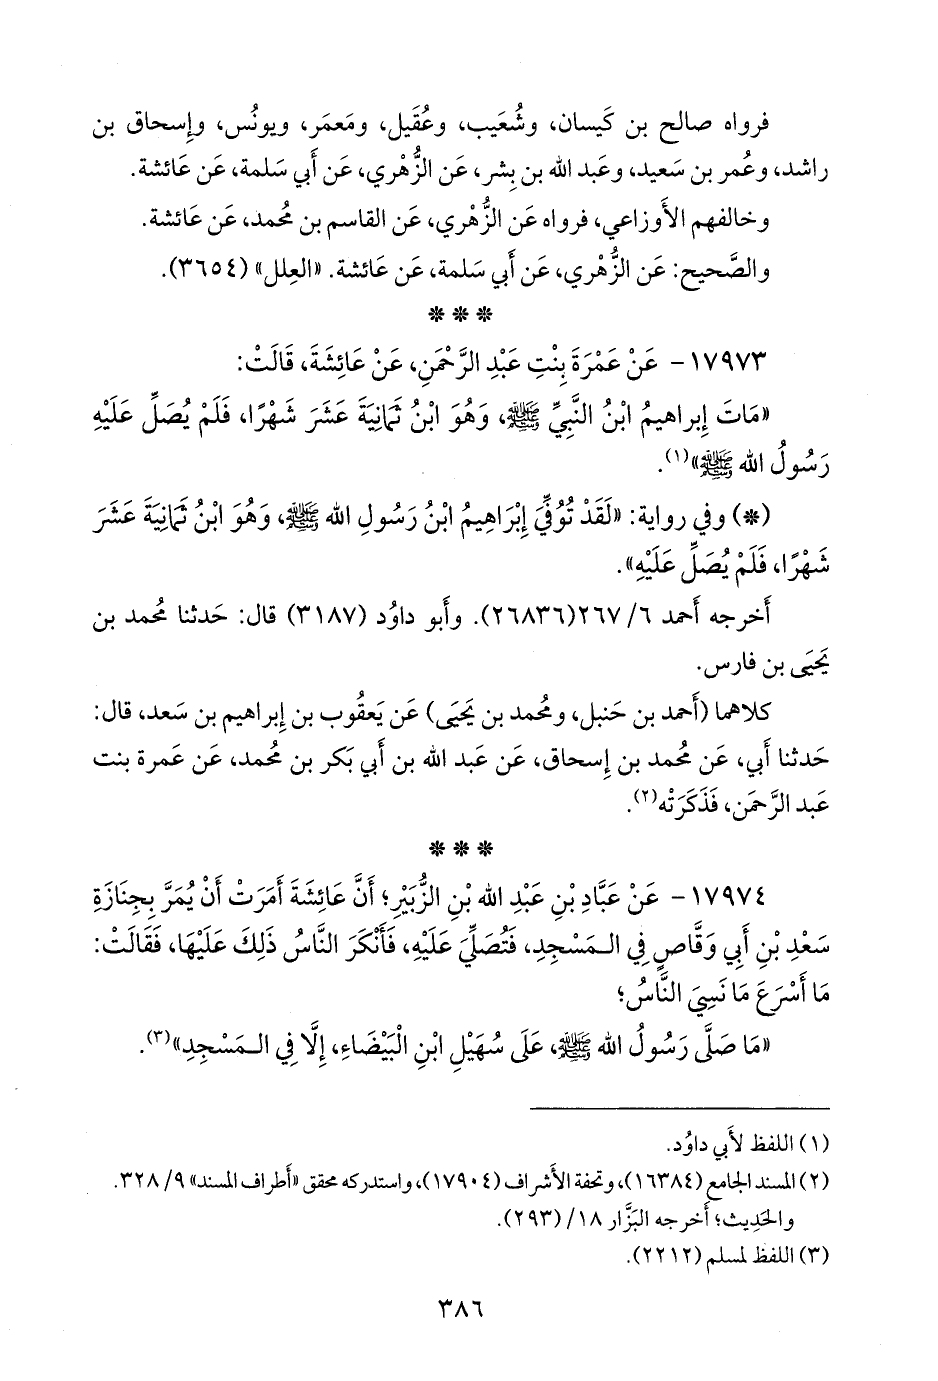 فرواه صالح بن كَيسان، وشُعَيب، وعُقَيل، ومَعمَر، ويونُس، وإِسحاق بن
راشد، وعُمر بن سَعيد، وعَبد الله بن بِشر، عَن الزُّهْري، عَن أَبي سَلمة، عَن عَائشة.
وخالفهم الأَوزاعي، فرواه عَن الزُّهْري، عَن القاسم بن مُحمد، عَن عَائشة.
والصَّحيح: عَن الزُّهْري، عَن أَبي سَلمة، عَن عَائشة. «العِلل» (٣٦٥٤).
* * *
١٧٩٧٣- عَنْ عَمْرَةَ بِنْتِ عَبْدِ الرَّحْمَنِ، عَنْ عَائِشَةَ، قَالَتْ:
«مَاتَ إِبراهيمُ ابْنُ النَّبِيِّ ﷺ، وَهُوَ ابْنُ ثَمَانِيَةَ عَشَرَ شَهْرًا، فَلَمْ يُصَلِّ عَلَيْهِ
رَسُولُ الله ﷺ»(١).
(*) وفي رواية: «لَقَدْ تُوُفِّيَ إِبْرَاهِيمُ ابْنُ رَسُولِ الله ﷺ، وَهُوَ ابْنُ ثَمَانِيَةَ عَشَرَ
شَهْرًا، فَلَمْ يُصَلِّ عَلَيْهِ».
أَخرجه أَحمد ٦/ ٢٦٧(٢٦٨٣٦). وأَبو داوُد (٣١٨٧) قال: حَدثنا مُحمد بن
يَحيَى بن فارس.
كلاهما (أَحمد بن حَنبل، ومُحمد بن يَحيَى) عَن يَعقُوب بن إِبراهيم بن سَعد، قال:
حَدثنا أَبي، عَن مُحمد بن إِسحاق، عَن عَبد الله بن أَبي بَكر بن مُحمد، عَن عَمرة بنت
عَبد الرَّحمَن، فَذَكَرَتْه(٢).
* * *
١٧٩٧٤- عَنْ عَبَّادِ بْنِ عَبْدِ الله بْنِ الزُّبَيْرِ؛ أَنَّ عَائِشَةَ أَمَرَتْ أَنْ يُمَرَّ بِجِنَازَةِ
سَعْدِ بْنِ أَبِي وَقَّاصٍ فِي الـمَسْجِدِ، فَتُصَلِّيَ عَلَيْهِ، فَأَنْكَرَ النَّاسُ ذَلِكَ عَلَيْهَا، فَقَالَتْ:
مَا أَسْرَعَ مَا نَسِيَ النَّاسُ؛
«مَا صَلَّى رَسُولُ الله ﷺ، عَلَى سُهَيْلِ ابْنِ الْبَيْضَاءِ، إِلَّا فِي الـمَسْجِدِ»(٣).
(١) اللفظ لأَبي داوُد.
(٢) المسند الجامع (١٦٣٨٤)، وتحفة الأشراف (١٧٩٠٤)، واستدركه محقق «أَطراف المسند» ٩/ ٣٢٨.
والحَدِيث؛ أَخرجه البَزَّار ١٨/ (٢٩٣).
(٣) اللفظ لمسلم (٢٢١٢).
٣٨٦